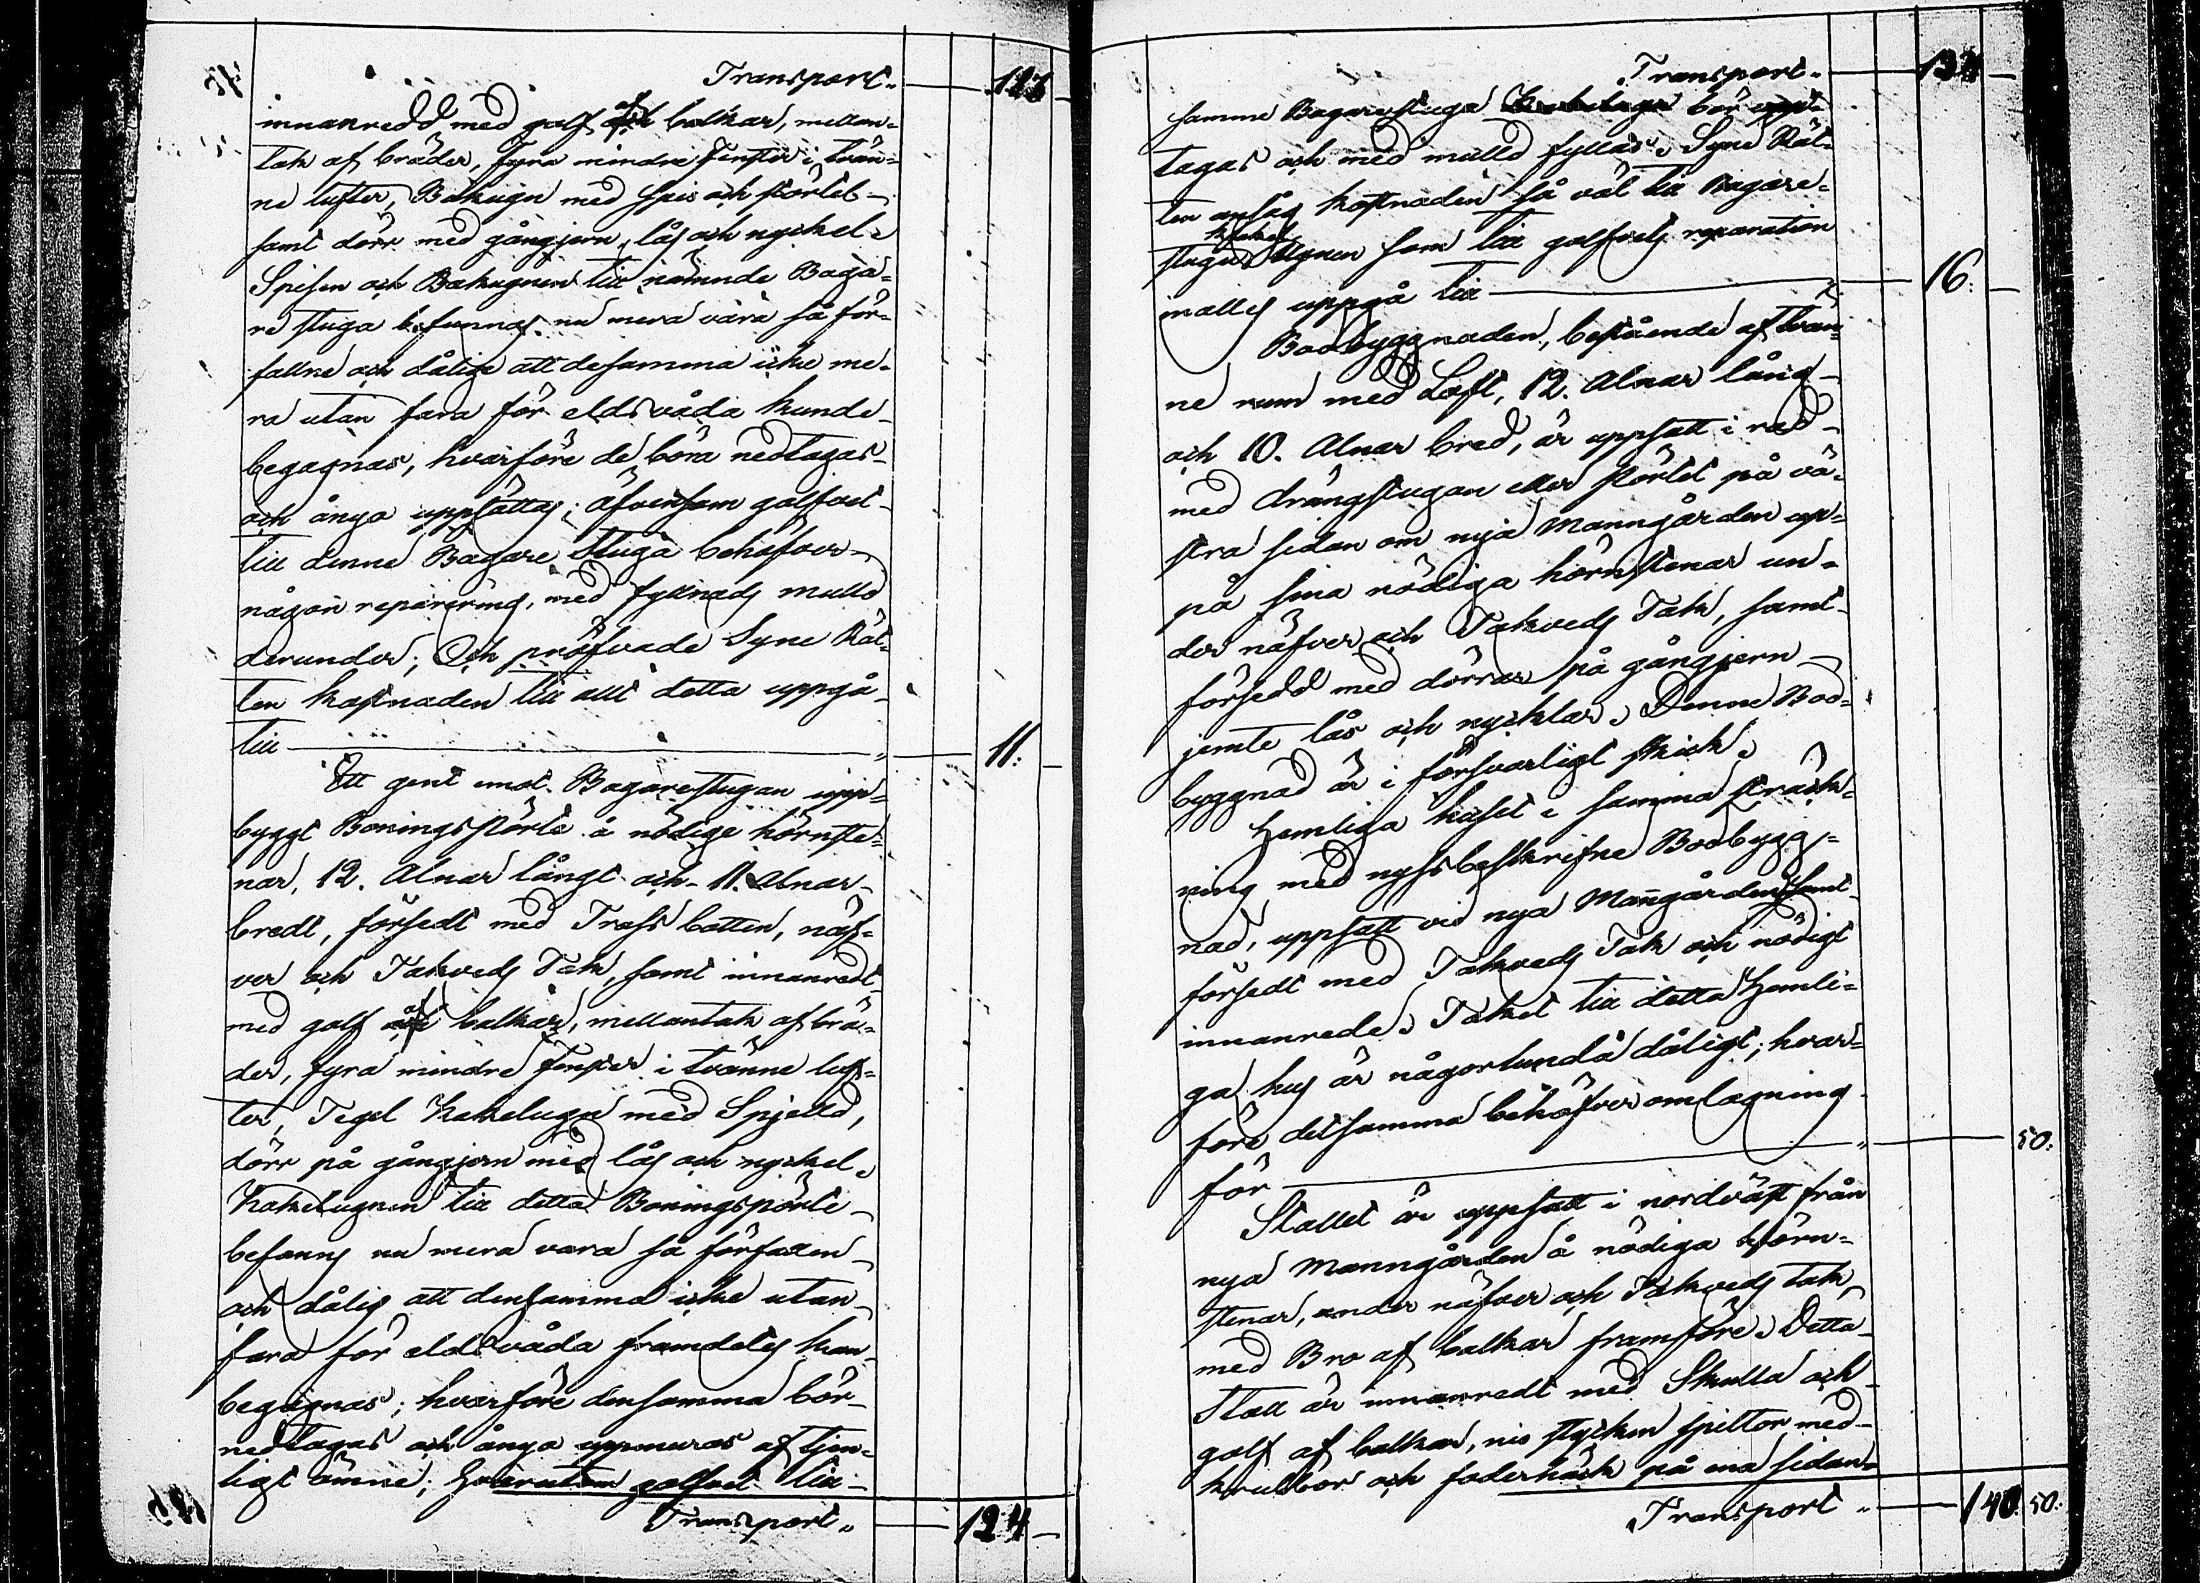 Transport. 113
innanredd med golf af balkar, mellan-
tak af bräder, Fyra mindre Fenster i tvän-
ne lufter, Bakugn med Spis och pörtet
samt dörr med gångjern, lås och nyckel.
Spisen och Bakugnen till nämnde Baga-
re stuga befunnos nu mera vara så för-
fallne och dålige att desamma icke me-
ra utan fara för eldsvåda kunde
begagnas, hvarföre de böra nedtagas
och ånyo uppsättas; äfvensom golfvet
till denne Bagare Stuga behöfver
någon reparering, med fyllnads mulld
derunder; Och pröfvade Syne Rät-
ten kostnaden till allt detta uppgå
till 11.
Ett gent emot Bagarestugan upp-
byggt Boningspörte å nödige hörnste-
nar, 12. Alnar långt och 11. Alnar
bredt, försedt med Trossbotten, näf-
ver och Takveds Tak, samt innanredt
med golf af balkar, mellantak af brä-
der, fyra mindre Fenster i tvänne luf-
ter, Tegel Kakelugn med Spjelld,
dörr på gångjern med lås och nyckel.
Kakelugnen till detta Boningspörte
befanns nu mera vara så förfallen
och dålig att densamma icke utan
fara för eldsvåda framdeles kan
begagnas; hvarföre densamma bör
nedtagas och ånyo uppmuras af tjen-
ligt ämne; Hvarutom golfvet till
Transport. 124
Transport. 124
samme Bagarestuga bör upp-
tagas och med mulld fyllas. Syne Rät-
ten ansåg kostnaden så väl till Bagare-
stugu Ugnen som till golfvets reparation
kakel
inalles uppgå till 16.
Bodbyggnaden, bestående af tvän-
ne rum med Loft, 12. Alnar lång
och 10. Alnar bred, är uppsatt i rad
med drängstugan eller pörtet på vä-
stra sidan om nya Manngården up-
på sina nödiga hörnstenar un-
der näfver och Takveds Tak, samt
försedd med dörrar på gångjern
jemte lås och nycklar. Denne Bod-
byggnad är i försvarligt skick.
Hemliga huset i samma sträck-
ning med nyssbeskrifne Bodbygg-
nad, uppsatt vid nya Mangården samt
försedt med Takveds Tak och nödigt
innanrede. Taket till detta Hemli-
ga hus är någorlunda dåligt; hvar-
före detsamma behöfver omlagning
för 50.
Stallet är uppsatt i nordväst från
nya Manngården å nödiga hörn-
stenar, under näfver och Takveds tak,
med Bro af balkar framföre. Detta
Stall är innanredt med Skulla och
golf af balkar, nio stycken spiltor med
krubbor och foderhäck på ena sidan.
Transport 140. 50.